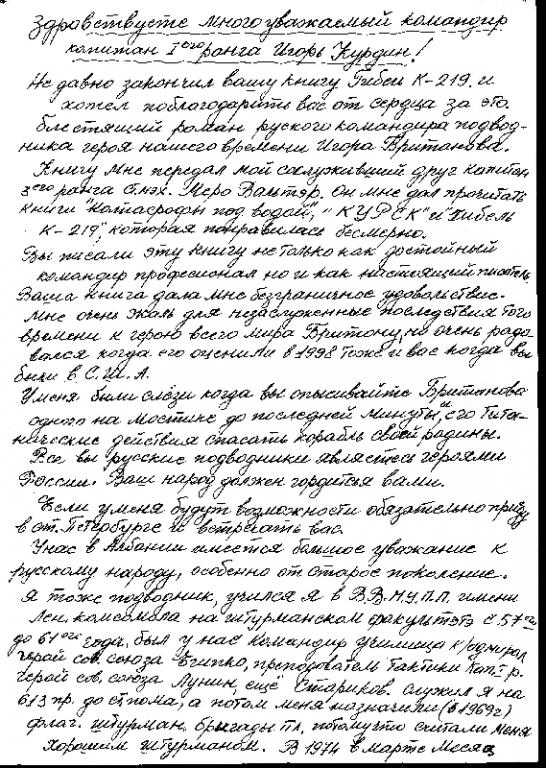 Здравствуйте много уважаемый командир
капитан I ого ранга Игорь Курдин!
Не давно закончил вашу книгу Гибель К-219. и
хотел поблагодарить вас от сердца за это
блестящий роман руского командира подвод-
ника героя нашего времени Игора Британова.
Книгу мне передал мой сослуживший друг капитан
3его ранга Меро Вальтэр. Он мне дал прочитать
книги "Катасрофы под водой", "КУРСК" и Гибель
К-219", которая понравилась бесмерно.
Вы писали эту книгу не только как достойный
командир професионал но и как настоящий писатель.
Ваша книга дала мне безграничное удовольствие.
Мне очень жаль для незаслуженные последствия того
времени к герою всего мира Британу, но очень радо
вался когда его оценили в 1998 тоже и вас когда вы
были в С.Ш.А.
У меня были слёзи когда вы описывайте Британова
одного на мостике до последней минуты, и его тита-
нические действия спасать корабль своей родины.
Все вы русские подводники являетесь героями
России. Ваш народ должен гордится вами.
Если у меня будут возможности обязательно приеду
в Петербурге и встречать вас.
У нас в Албании имеется большое уважание к
русскому народу, особенно от старое поколение.
Я тоже подводник, учился я в В.В.М.У.П.П. имени
Лен. комсомола на штурманском факультэтэ с 57 ого
до 61 ого года, был у нас командир училища к/адмирал
герой сов. союза Египко, преподователем тактики кап. I р.
герой сов. союза Лунин, ещё Стариков. служил я на
613 пр. до ст. пома, а потом меня назначили (в 1969г)
флаг. штурман. бригады пл, потомучто считали меня
хорошим штурманом. В 1974 в марте месяц